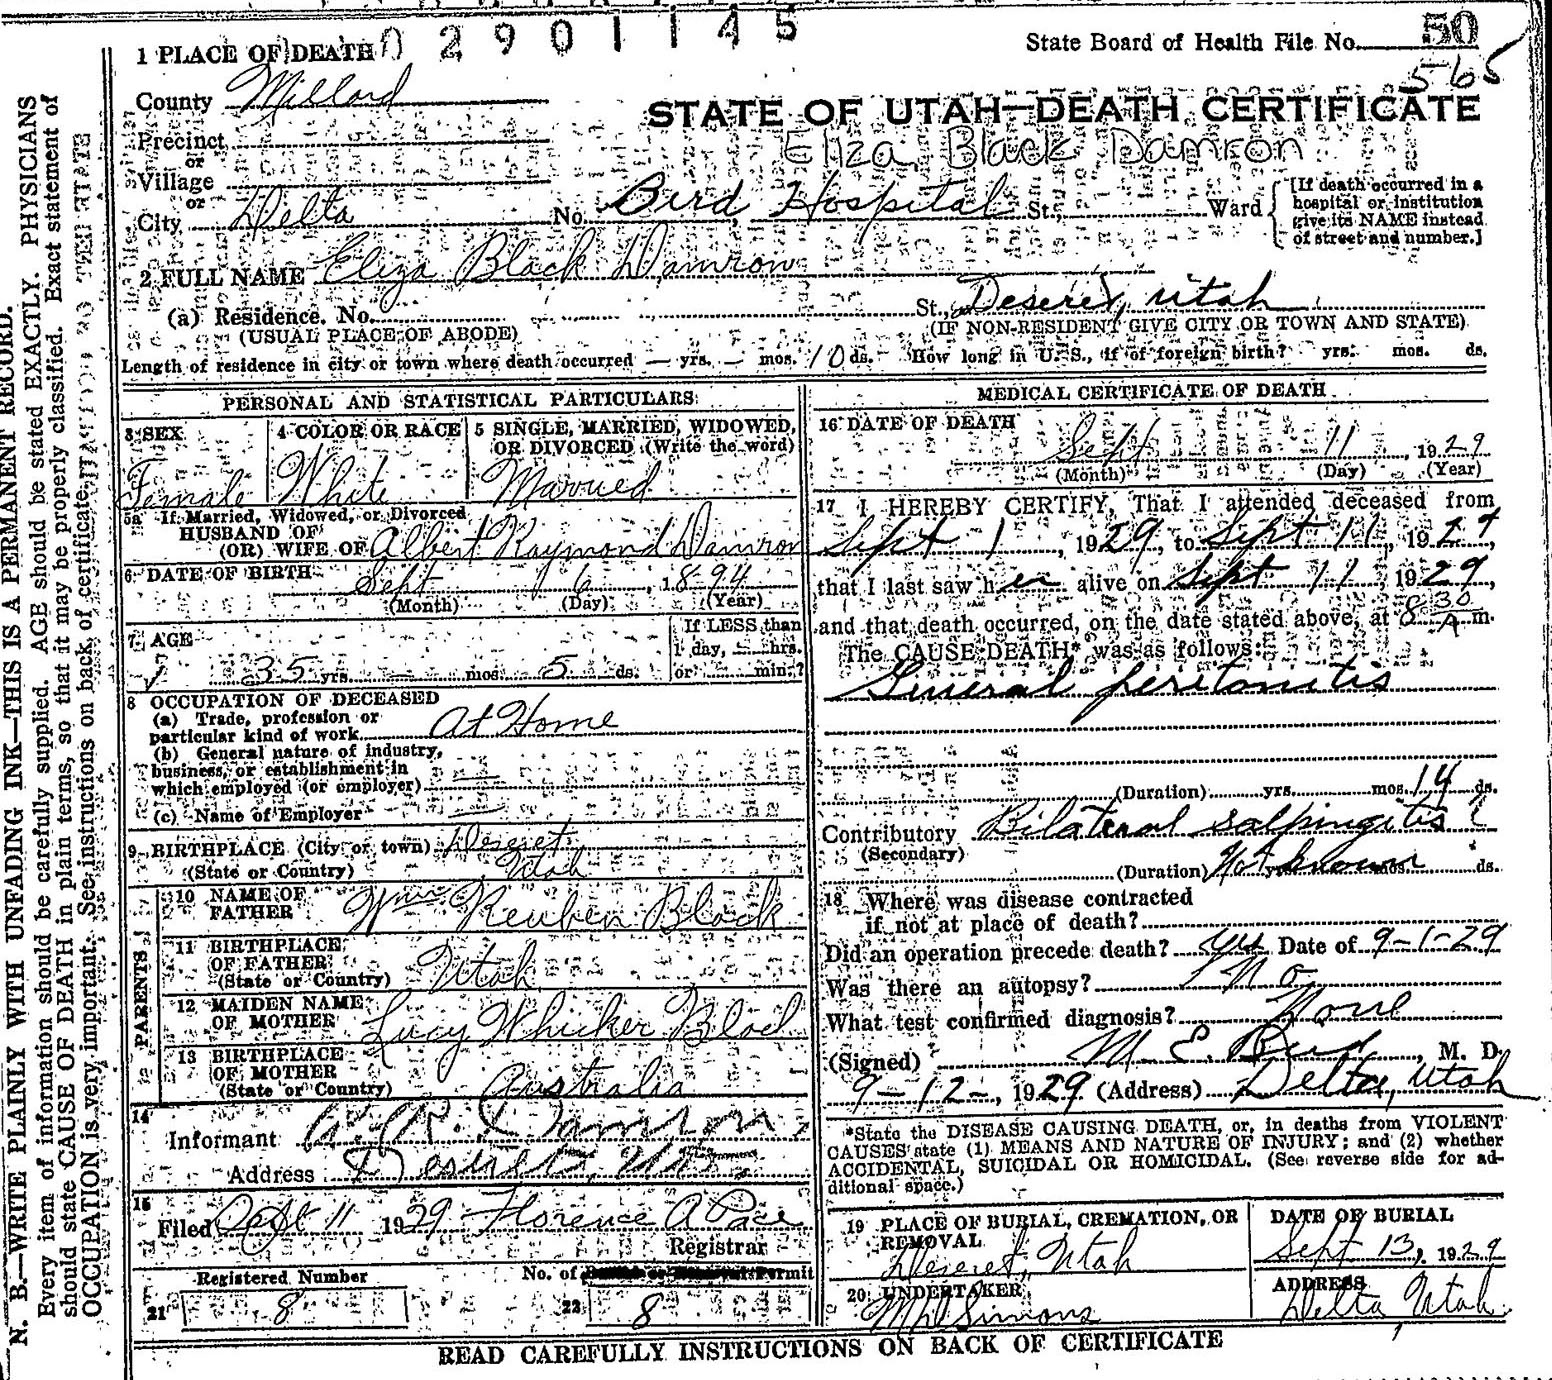 0 2 9 0 1 1 4 5
State Board of Health File No. 50
565
1 PLACE OF DEATH
County Millard
STATE OF UTAH—DEATH CERTIFICATE
Eliza Black Damron
Precinct
or
Village
or
City Delta No. Bird Hospital St., Ward
[If death occurred in a
hospital or institution
give its NAME instead
of street and number.]
2 FULL NAME Eliza Black Damron
(a) Residence. No. St., Deseret, Utah
(USUAL PLACE OF ABODE) (IF NON-RESIDENT GIVE CITY OR TOWN AND STATE)
Length of residence in city or town where death occurred — yrs. — mos. 10 ds. How long in U. S., if of foreign birth? yrs. mos. ds.
PERSONAL AND STATISTICAL PARTICULARS
3 SEX
Female
4 COLOR OR RACE
White
5 SINGLE, MARRIED, WIDOWED,
OR DIVORCED (Write the word)
Married
5a If Married, Widowed, or Divorced
HUSBAND OF
(OR) WIFE OF Albert Raymond Damron
6 DATE OF BIRTH Sept 6, 1894
(Month) (Day) (Year)
7 AGE
35 yrs. — mos. 5 ds.
If LESS than
1 day, hrs.
or min.?
8 OCCUPATION OF DECEASED
(a) Trade, profession or
particular kind of work At Home
(b) General nature of industry,
business, or establishment in
which employed (or employer) —
(c) Name of Employer —
9 BIRTHPLACE (City or town) Deseret
(State or Country) Utah
PARENTS
10 NAME OF
FATHER Wm Reuben Black
11 BIRTHPLACE
OF FATHER
(State or Country) Utah
12 MAIDEN NAME
OF MOTHER Lucy Whicker Black
13 BIRTHPLACE
OF MOTHER
(State or Country) Australia
14
Informant A. R. Damron
Address Deseret, Utah
15
Filed Sept 11 1929 Florence A Pace
Registrar
Registered Number
21 8
No. of Permit
22 8
MEDICAL CERTIFICATE OF DEATH
16 DATE OF DEATH
Sept 11, 1929
(Month) (Day) (Year)
17 I HEREBY CERTIFY, That I attended deceased from
Sept 1, 1929, to Sept 11, 1929,
that I last saw her alive on Sept 11 1929,
and that death occurred, on the date stated above, at 8 30 A m.
The CAUSE DEATH* was as follows:
General peritonitis
(Duration) yrs. mos. 14 ds.
Contributory Bilateral salpingitis
(Secondary)
(Duration) Not known yrs. mos. ds.
18 Where was disease contracted
if not at place of death?
Did an operation precede death? yes Date of 9-1-29
Was there an autopsy? No
What test confirmed diagnosis? None
(Signed) M. E. Bird, M. D.
9-12-, 1929 (Address) Delta, Utah
*State the DISEASE CAUSING DEATH, or, in deaths from VIOLENT
CAUSES state (1) MEANS AND NATURE OF INJURY; and (2) whether
ACCIDENTAL, SUICIDAL OR HOMICIDAL. (See reverse side for ad-
ditional space.)
19 PLACE OF BURIAL, CREMATION, OR
REMOVAL
Deseret, Utah
DATE OF BURIAL
Sept 13, 1929
20 UNDERTAKER
Simons
ADDRESS
Delta, Utah
READ CAREFULLY INSTRUCTIONS ON BACK OF CERTIFICATE
N. B.—WRITE PLAINLY WITH UNFADING INK—THIS IS A PERMANENT RECORD.
Every item of information should be carefully supplied. AGE should be stated EXACTLY. PHYSICIANS
should state CAUSE OF DEATH in plain terms, so that it may be properly classified. Exact statement of
OCCUPATION is very important. See instructions on back of certificate.